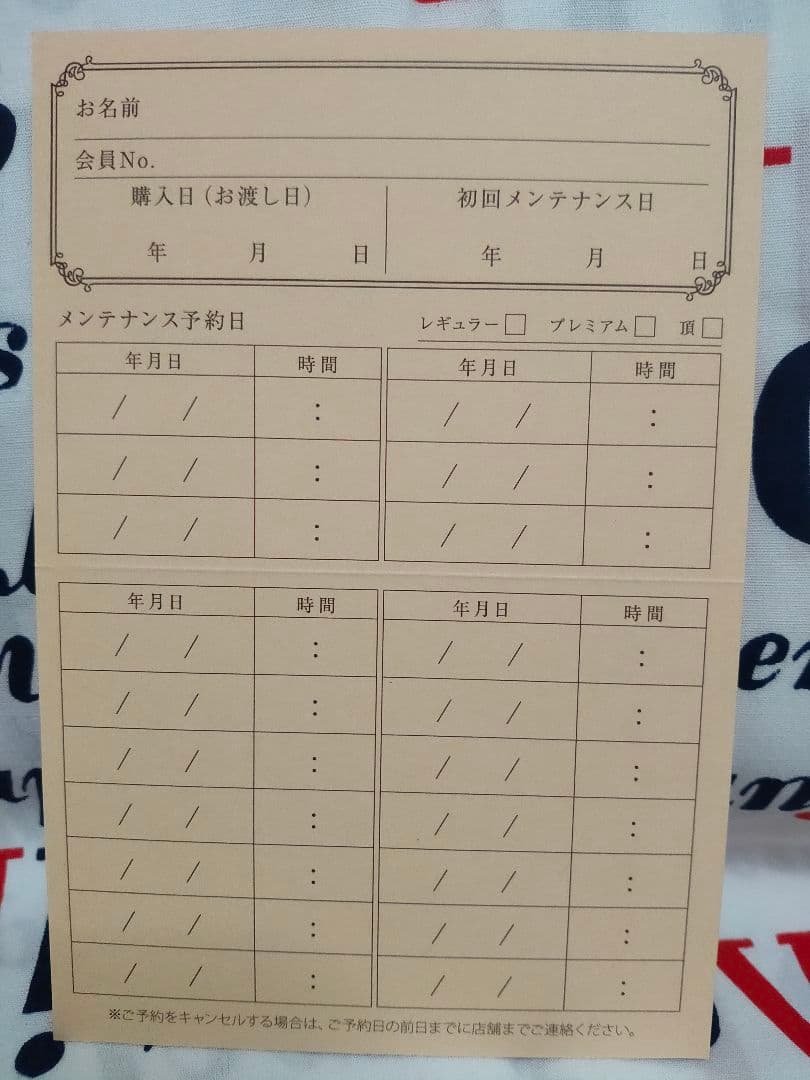 お名前
会員No.
購入日（お渡し日） 初回メンテナンス日
年 月 日 年 月 日
メンテナンス予約日 レギュラー□ プレミアム□ 頂□
年月日 時間 年月日 時間
/ / : / / :
/ / : / / :
/ / : / / :
年月日 時間 年月日 時間
/ / : / / :
/ / : / / :
/ / : / / :
/ / : / / :
/ / : / / :
/ / : / / :
/ / : / / :
※ご予約をキャンセルする場合は、ご予約日の前日までに店舗までご連絡ください。